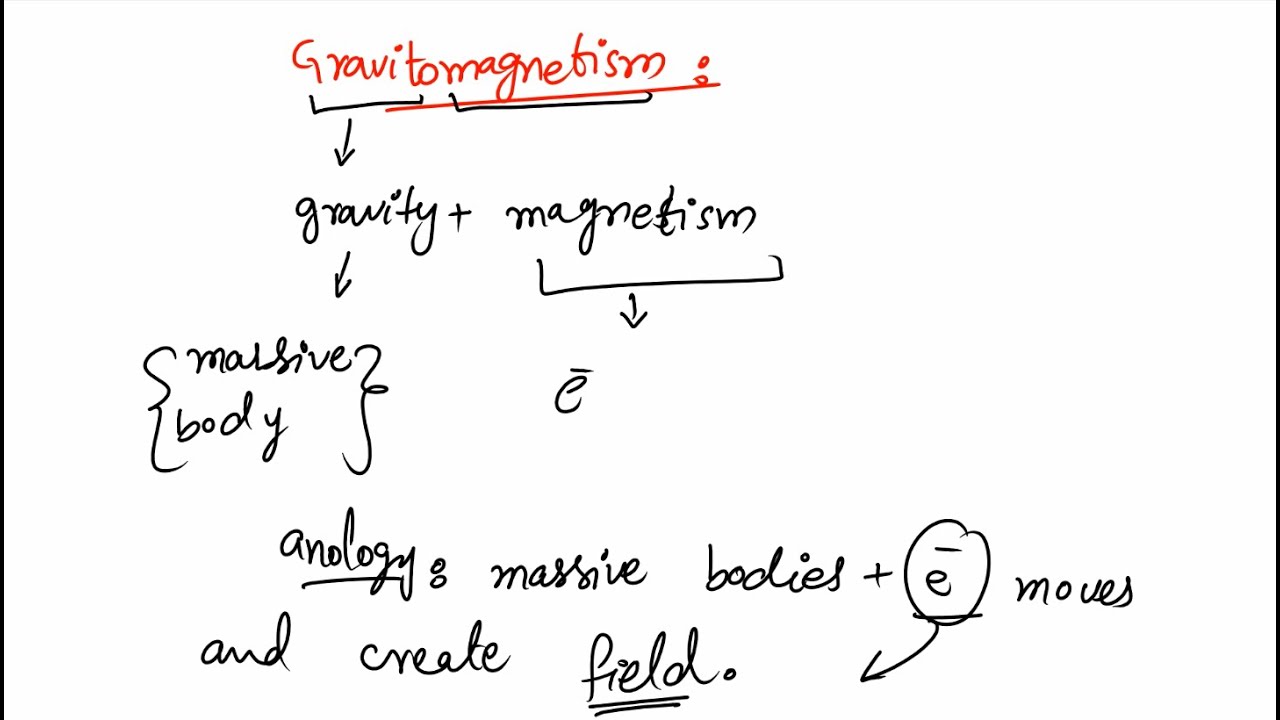 Gravitomagnetism :
gravity + magnetism
massive
body
e̅
anology : massive bodies + e̅ moves
and create field.